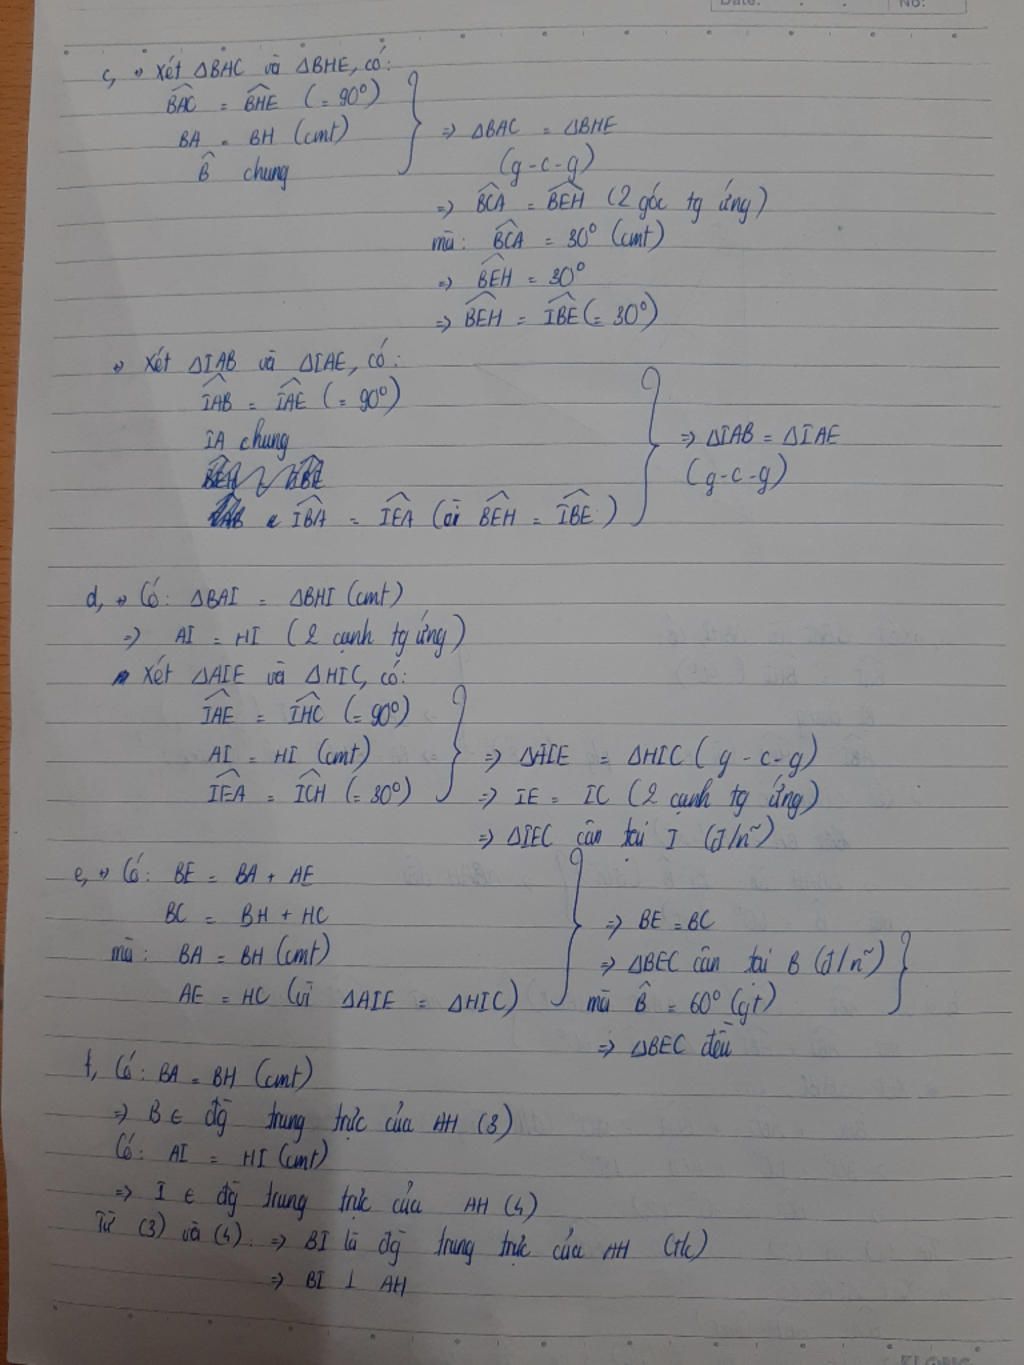 Date:
No:
c, ↔ Xét ΔBAC và ΔBHE, có:
BAC = BHE (= 90°)
BA = BH (cmt)
B chung
=> ΔBAC = ΔBHE
(g-c-g)
=> BCA = BEH (2 góc tg ứng)
mà: BCA = 30° (cmt)
=> BEH = 30°
=> BEH = IBE (= 30°)
↔ Xét ΔIAB và ΔIAE, có:
IAB = IAE (= 90°)
IA chung
IBA = IEA (vì BEH = IBE)
=> ΔIAB = ΔIAE
(g-c-g)
d, ↔ Có: ΔBAI = ΔBHI (cmt)
=> AI = HI (2 cạnh tg ứng)
Xét ΔAIE và ΔHIC, có:
IAE = IHC (= 90°)
AI = HI (cmt)
IEA = ICH (= 30°)
=> ΔAIE = ΔHIC (g-c-g)
=> IE = IC (2 cạnh tg ứng)
=> ΔIEC cân tại I (đ/n~)
e, ↔ Có: BE = BA + AE
BC = BH + HC
mà: BA = BH (cmt)
AE = HC (vì ΔAIE = ΔHIC)
=> BE = BC
=> ΔBEC cân tại B (đ/n~)
mà B = 60° (gt)
=> ΔBEC đều
f, Có: BA = BH (cmt)
=> B ∈ đg trung trực của AH (3)
Có: AI = HI (cmt)
=> I ∈ đg trung trực của AH (4)
Từ (3) và (4) => BI là đg trung trực của AH (t/c)
=> BI ⊥ AH
KLONG